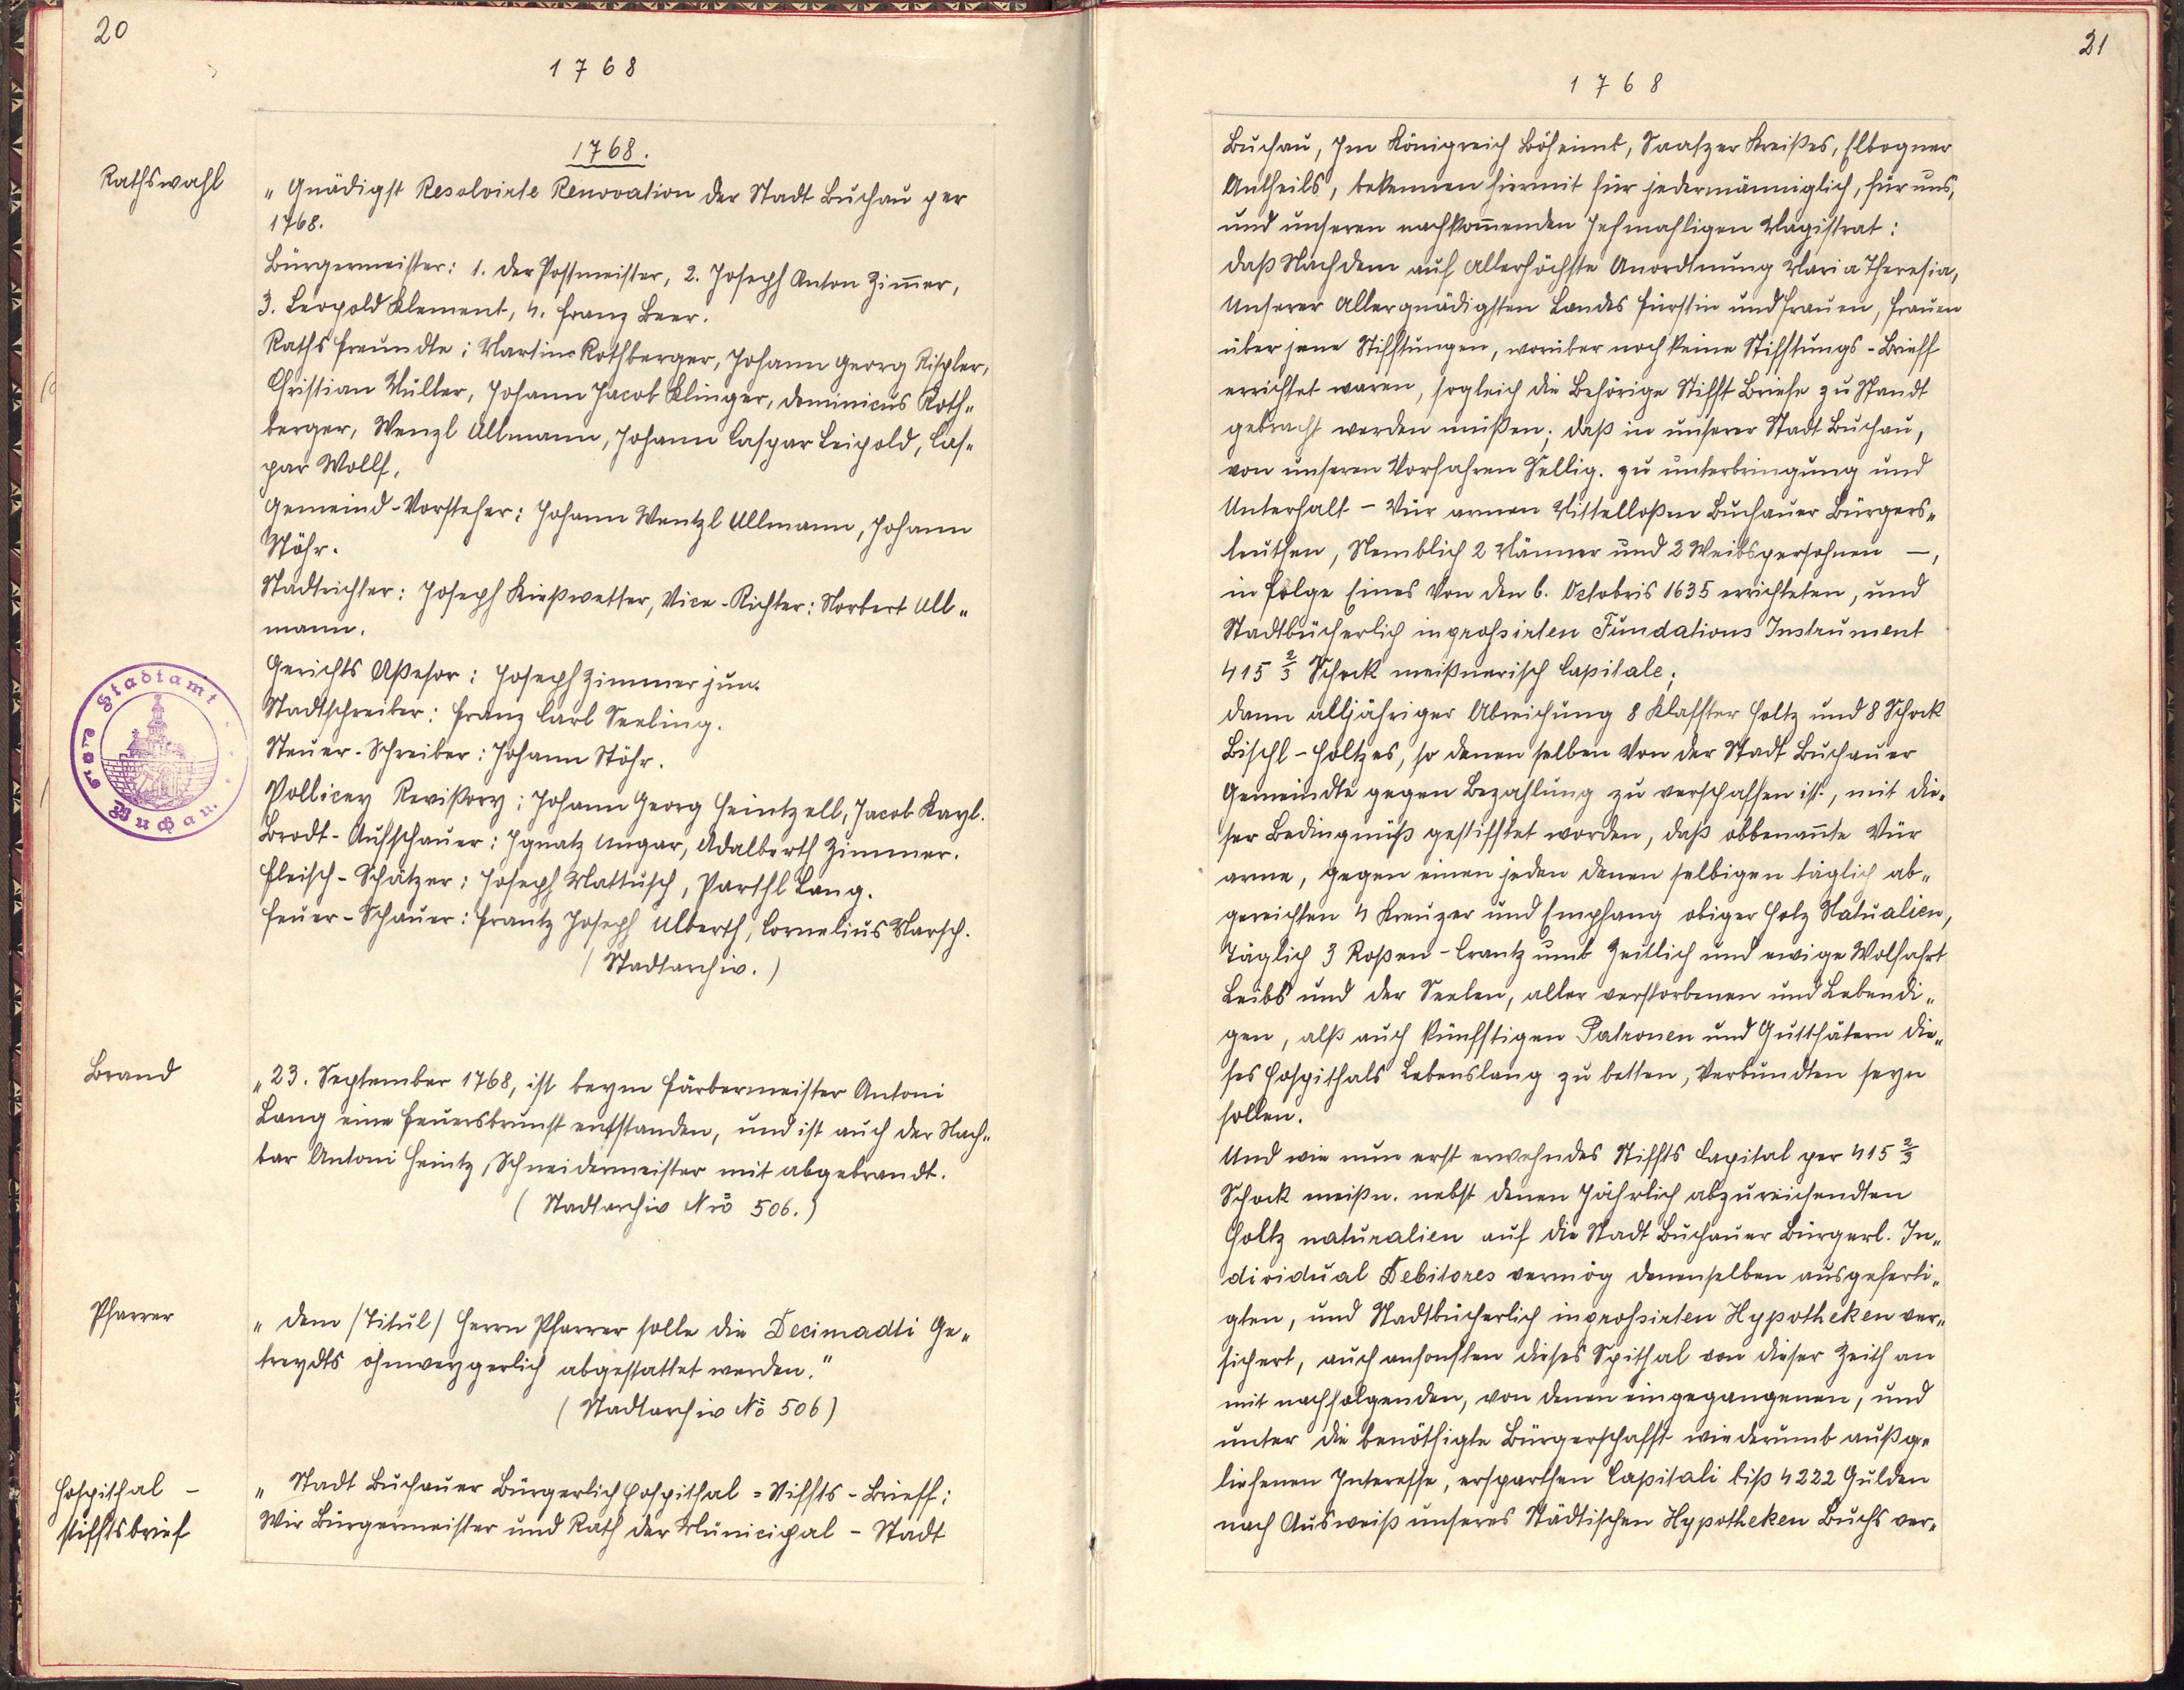 20
1768
1768.
Rathswahl
„Gnädigst Resolvirte Renovation der Stadt Buchau per
1768.
Bürgermeister: 1. der Postmeister, 2. Joseph Anton Zim̅er,
3. Leopold Klement, 4. Franz Beer.
Raths freundte: Martin Rothberger, Johann Georg Rischler,
Christian Müller, Johann Jacob Klinger, Dominicus Roth„
berger, Wenzl Ullmann, Johann Caspar Leipold, Cas„
par Wollf.
Gemeind-Vorsteher: Johann Wentzl Ullmann, Johann
Stöhr.
Stadtrichter: Joseph Kießwetter, Vice-Richter: Norbert Ull„
mann.
Gerichts Aßesor: Joseph Zimmer jun.
Stadtschreiber: Franz Carl Seeling.
Steuer-Schreiber: Johann Stöhr.
Pollicey Revißory: Johann Georg Heintzell, Jacob Kayl.
Brodt-Aufschauer: Ignatz Ungar, Adalberth Zimmer.
Fleisch-Schätzer: Joseph Mattusch, Parthl Lang.
Feuer-Schauer: Frantz Joseph Alberth, Cornelius Marsch.
(Stadtarchiv.)
Stadtamt
Buchau
Brand
„23. September 1768, ist beym Färbermeister Antoni
Lang eine Feuersbrunst entstanden, und ist auch der Nach„
bar Antoni Heintz, Schneidermeister mit abgebrandt.
(Stadtarchiv Nro 506.)
Pfarrer
„Dem /Titul/ Herrn Pfarrer solle die Decimadti Ge„
treydts ohnweygerlich abgestattet werden."
(Stadtarchiv No 506)
Hospithal-
stifftsbrief
„Stadt Buchauer Bürgerlich Hospithal = Stiffts-Brieff:
Wir Bürgermeister und Rath der Municipal-Stadt
21
1768
Buchau, Im Königreich Böheimb, Saatzer Kreißes, Elbogner
Antheils, bekennen hiermit für jedermänniglich, für uns,
und unseren nachkom̅enden Jehmahligen Magistrat:
Daß Nachdem auf Allerhöchste Anordnung Maria Theresia,
Unserer Allergnädigsten Landes Fürstin und Frauen, Frauen
über jene Stifftungen, worüber noch keine Stifftungs-Brieff
errichtet waren, sogleich die Behörige Stifft Briefe zu Standt
gebracht werden müßen; daß in unserer Stadt Buchau,
von unseren Vorfahren Sellig. zu Unterbringung und
Unterhalt - Vür armen Mittelloßen Buchauer Bürgers„
leuthen, Nemblich 2 Männer und 2 Weibspersohnen -,
in Folge Eines Von den 6. Octobris 1635 errichteten, und
Stadtbücherlich ingrossirten Fundations Instrument
415 2/3 Schock meißnerisch Capitale;
Dann alljähriger Abreichung 8 Klaffter Holtz und 8 Schock
Bischl-Holtzes, so denen selben Von der Stadt Buchauer
Gemeindte gegen Bezahlung zu verschaffen ist, mit die„
ser Bedingnüß gestifftet worden, daß obbenan̅te Vür
arme, gegen einen jeden denen selbigen täglich ab„
gereichten 4 Kreuzer und Empfang obiger Holz Natualien,
Täglich 3 Roßen-Crantz umb Zeitlich und ewige Wolfahrt
Leibs und der Seelen, aller verstorbenen und Lebendi„
gen, alß auch künfftigen Patronen und Gutthätern die„
ses Hospithals Lebenslang zu betten, Verbundten seyn
sollen.
Und wie nun erst erwehndes Stiffts Capital per 415 2/3
Schock meißn. nebst denen Jährlich abzureichendten
Holtz naturalien auf die Stadt Buchauer Bürgerl. In„
dividual Debitores vermög denenselben ausgeferti„
gten, und Stadtbücherlich ingrossirten Hypotheken ver„
sichert, auch ansonsten dieses Spithal von dieser Zeith an
mit nachfolgenden, von denen eingegangenen, und
unter die benöthigte Bürgerschafft wiederumb außge
liehenen Interesse, ersparthen Capitali biß 4222 Gulden
nach Ausweiß unseres Städtischen Hypotheken Buchs ver„